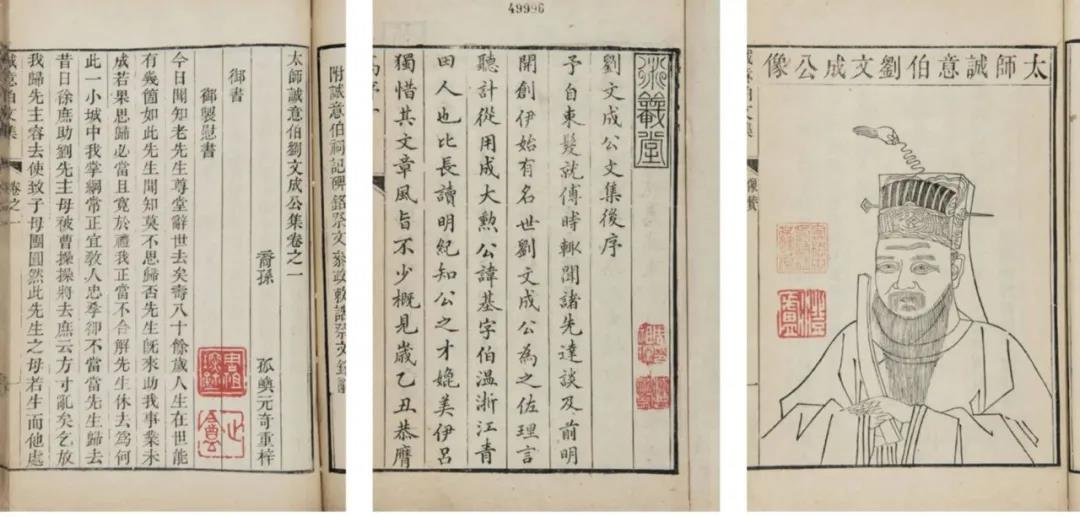 附誠意伯祠記碑銘祭文
太師誠意伯劉文成公集卷之一
裔孫 孤嶼元奇重梓
御書
御製慰書
今日聞知老先生尊堂辭世去矣壽八十餘歲人生在世能
有幾箇如此先生聞知莫不思歸否先生旣來助我事業未
成若果思歸必當且寬於禮我正當不合解先生休去為何
此一小城中我掌綱常正宜敎人忠孝卻不當當先生歸去
昔日徐庶助劉先主母被曹操操將去庶云方寸亂矣乞放
我歸先主容去使致子母團圓然此先生之母若生而他處
誠意伯文集 卷之一
49996
劉文成公文集後序
予自束髮就傅時輒聞諸先達談及前明
開創伊始有名世劉文成公為之佐理言
聽計從用成大勲公諱基字伯溫浙江青
田人也比長讀明紀知公之才媲美伊呂
獨惜其文章風旨不少概見歲乙丑恭膺
太師誠意伯劉文成公像
像贊